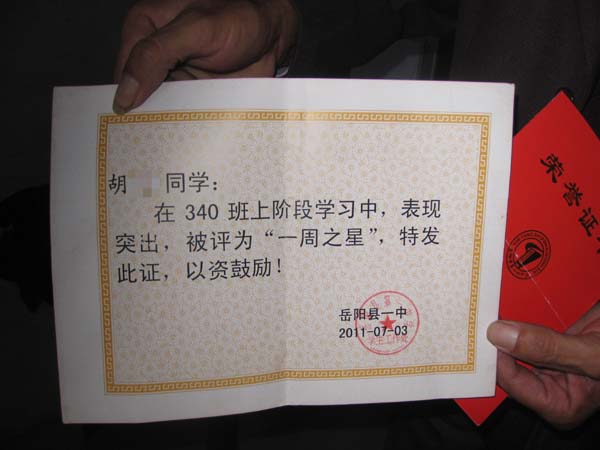 胡 同学：
在 340 班上阶段学习中，表现
突出，被评为“一周之星”，特发
此证，以资鼓励！
岳阳县一中
2011-07-03
学生工作处
荣誉证